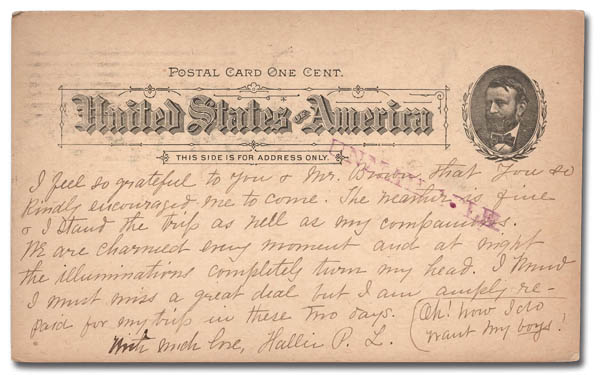 POSTAL CARD ONE CENT.
United States of America
THIS SIDE IS FOR ADDRESS ONLY.
UNMAILABLE
I feel so grateful to you & Mr. Brown that you so
kindly encouraged me to come. The weather is fine
& I stand the trip as well as my companions.
We are charmed every moment and at night
the illuminations completely turn my head. I know
I must miss a great deal but I am amply re-
paid for my trip in these two days.
(Oh! how I do
want my boys!
With much love, Hallie P. L.